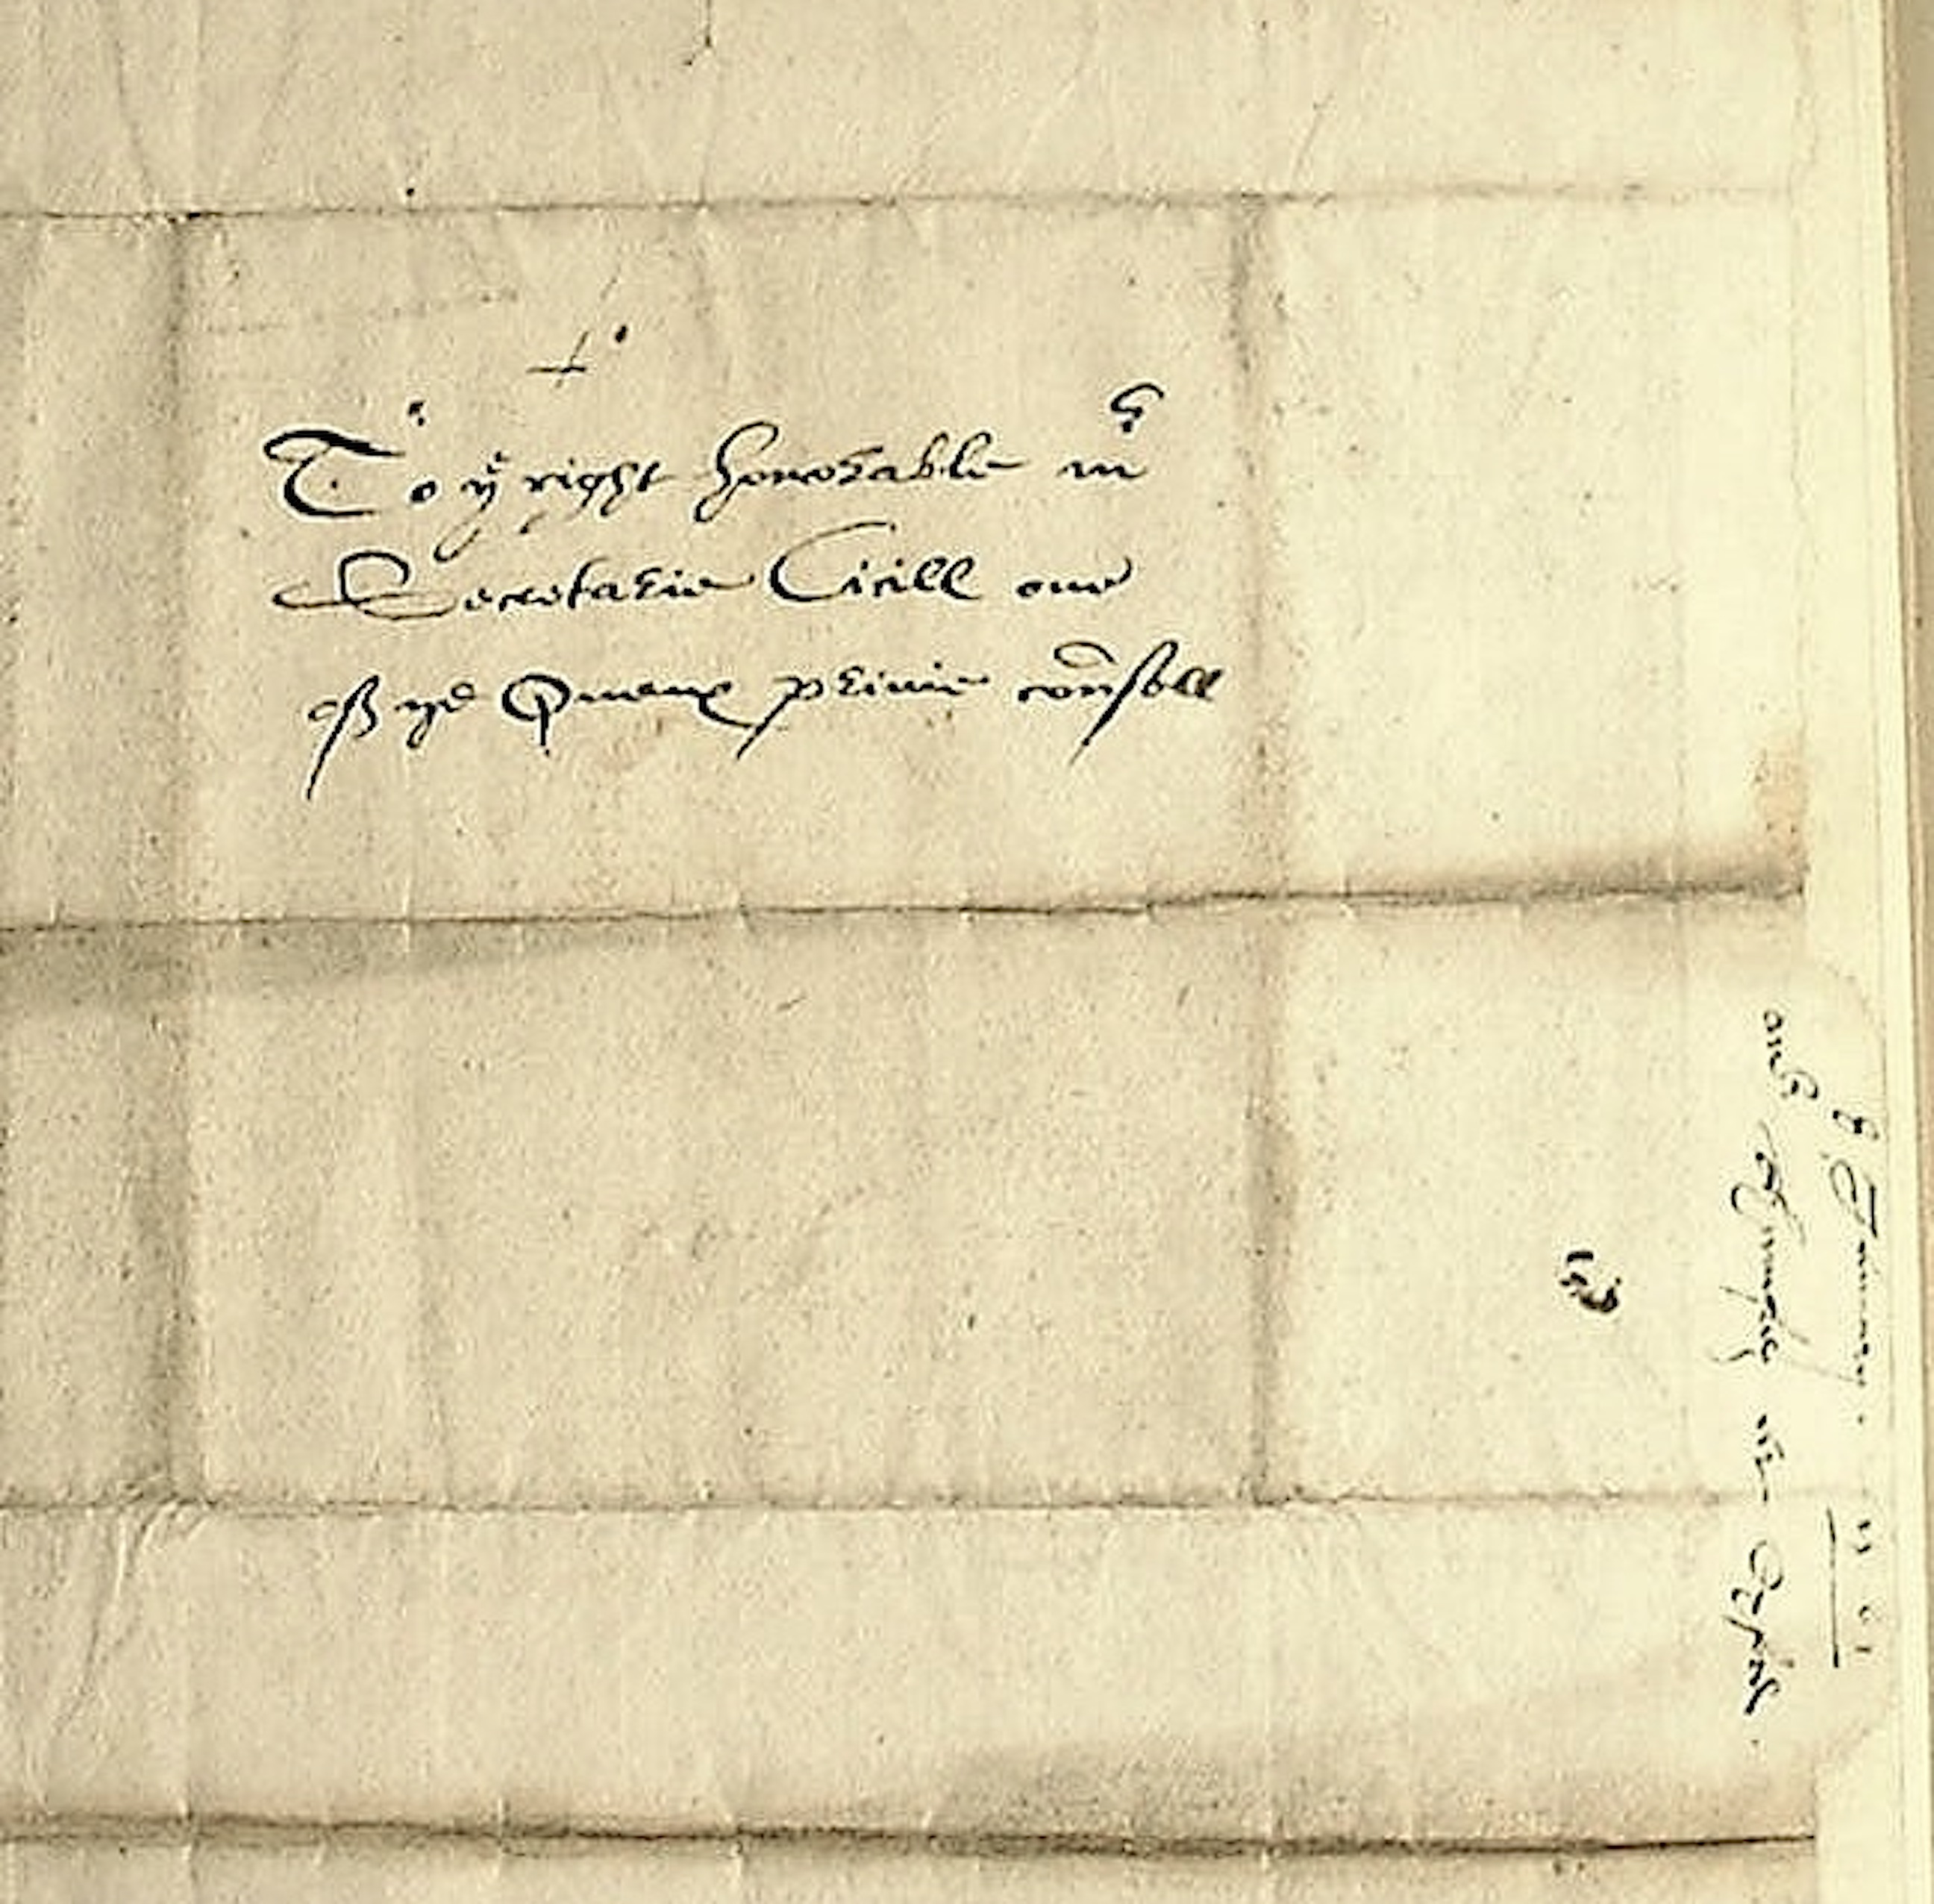 To yͤ right honorable mr
Secretarie Cicill one
off yͤ Quenes privie counsell
8 January 1561